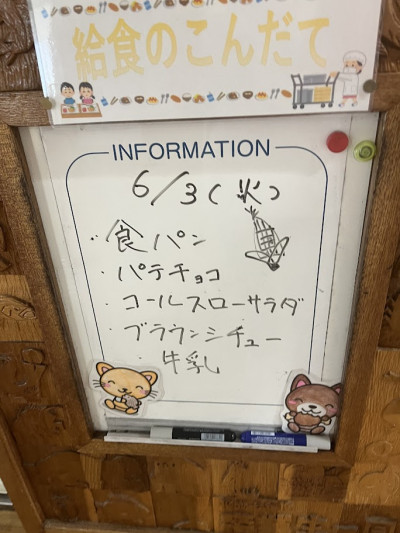 給食のこんだて
INFORMATION
6/3(火)
・食パン
・パテチョコ
・コールスローサラダ
・ブラウンシチュー
・牛乳